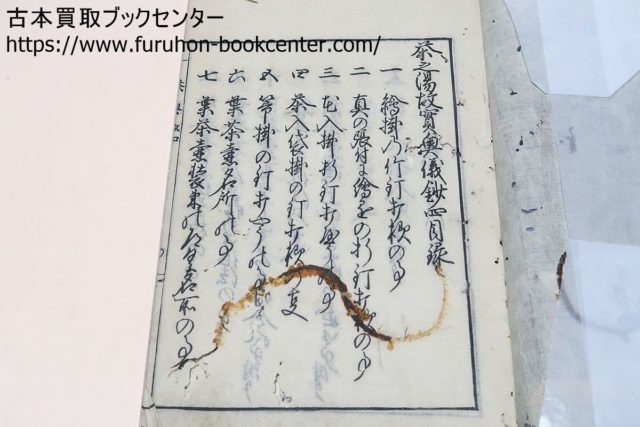 古本買取ブックセンター
https://www.furuhon-bookcenter.com/
茶之湯故實奥儀鈔四目録
一 繪掛乃竹釘打様の事
二 真の張付に繪をの折釘打様の事
三 花入掛折釘打
四 茶入袋掛の釘打様の事
五 箒掛の釘打やうの事
六 葉茶壷名所の事
七 葉茶壷装束の名所の事